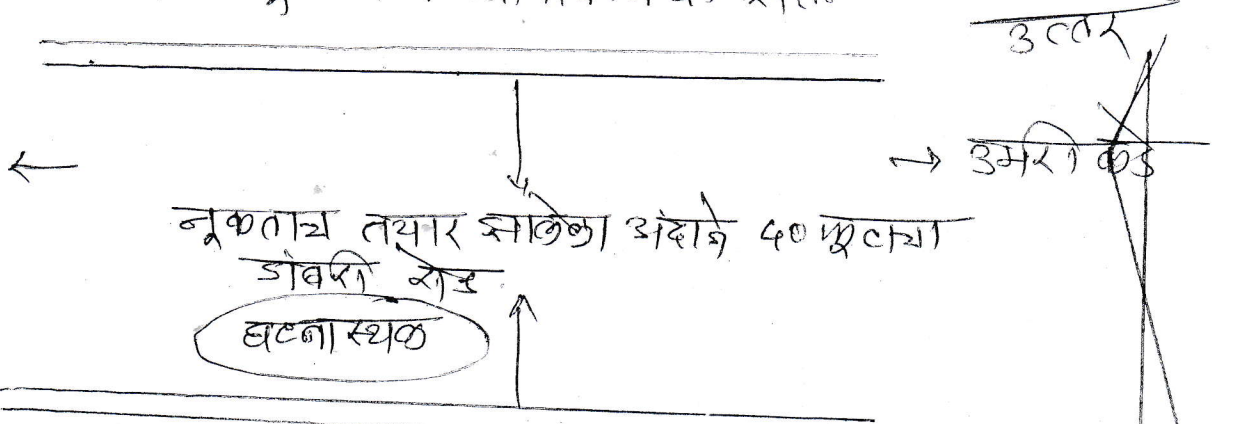 उत्तर
उमरी कडे
नूकताच तयार झालेला अंदाजे ५० फूटाचा
डांबरी रोड
घटना स्थळ